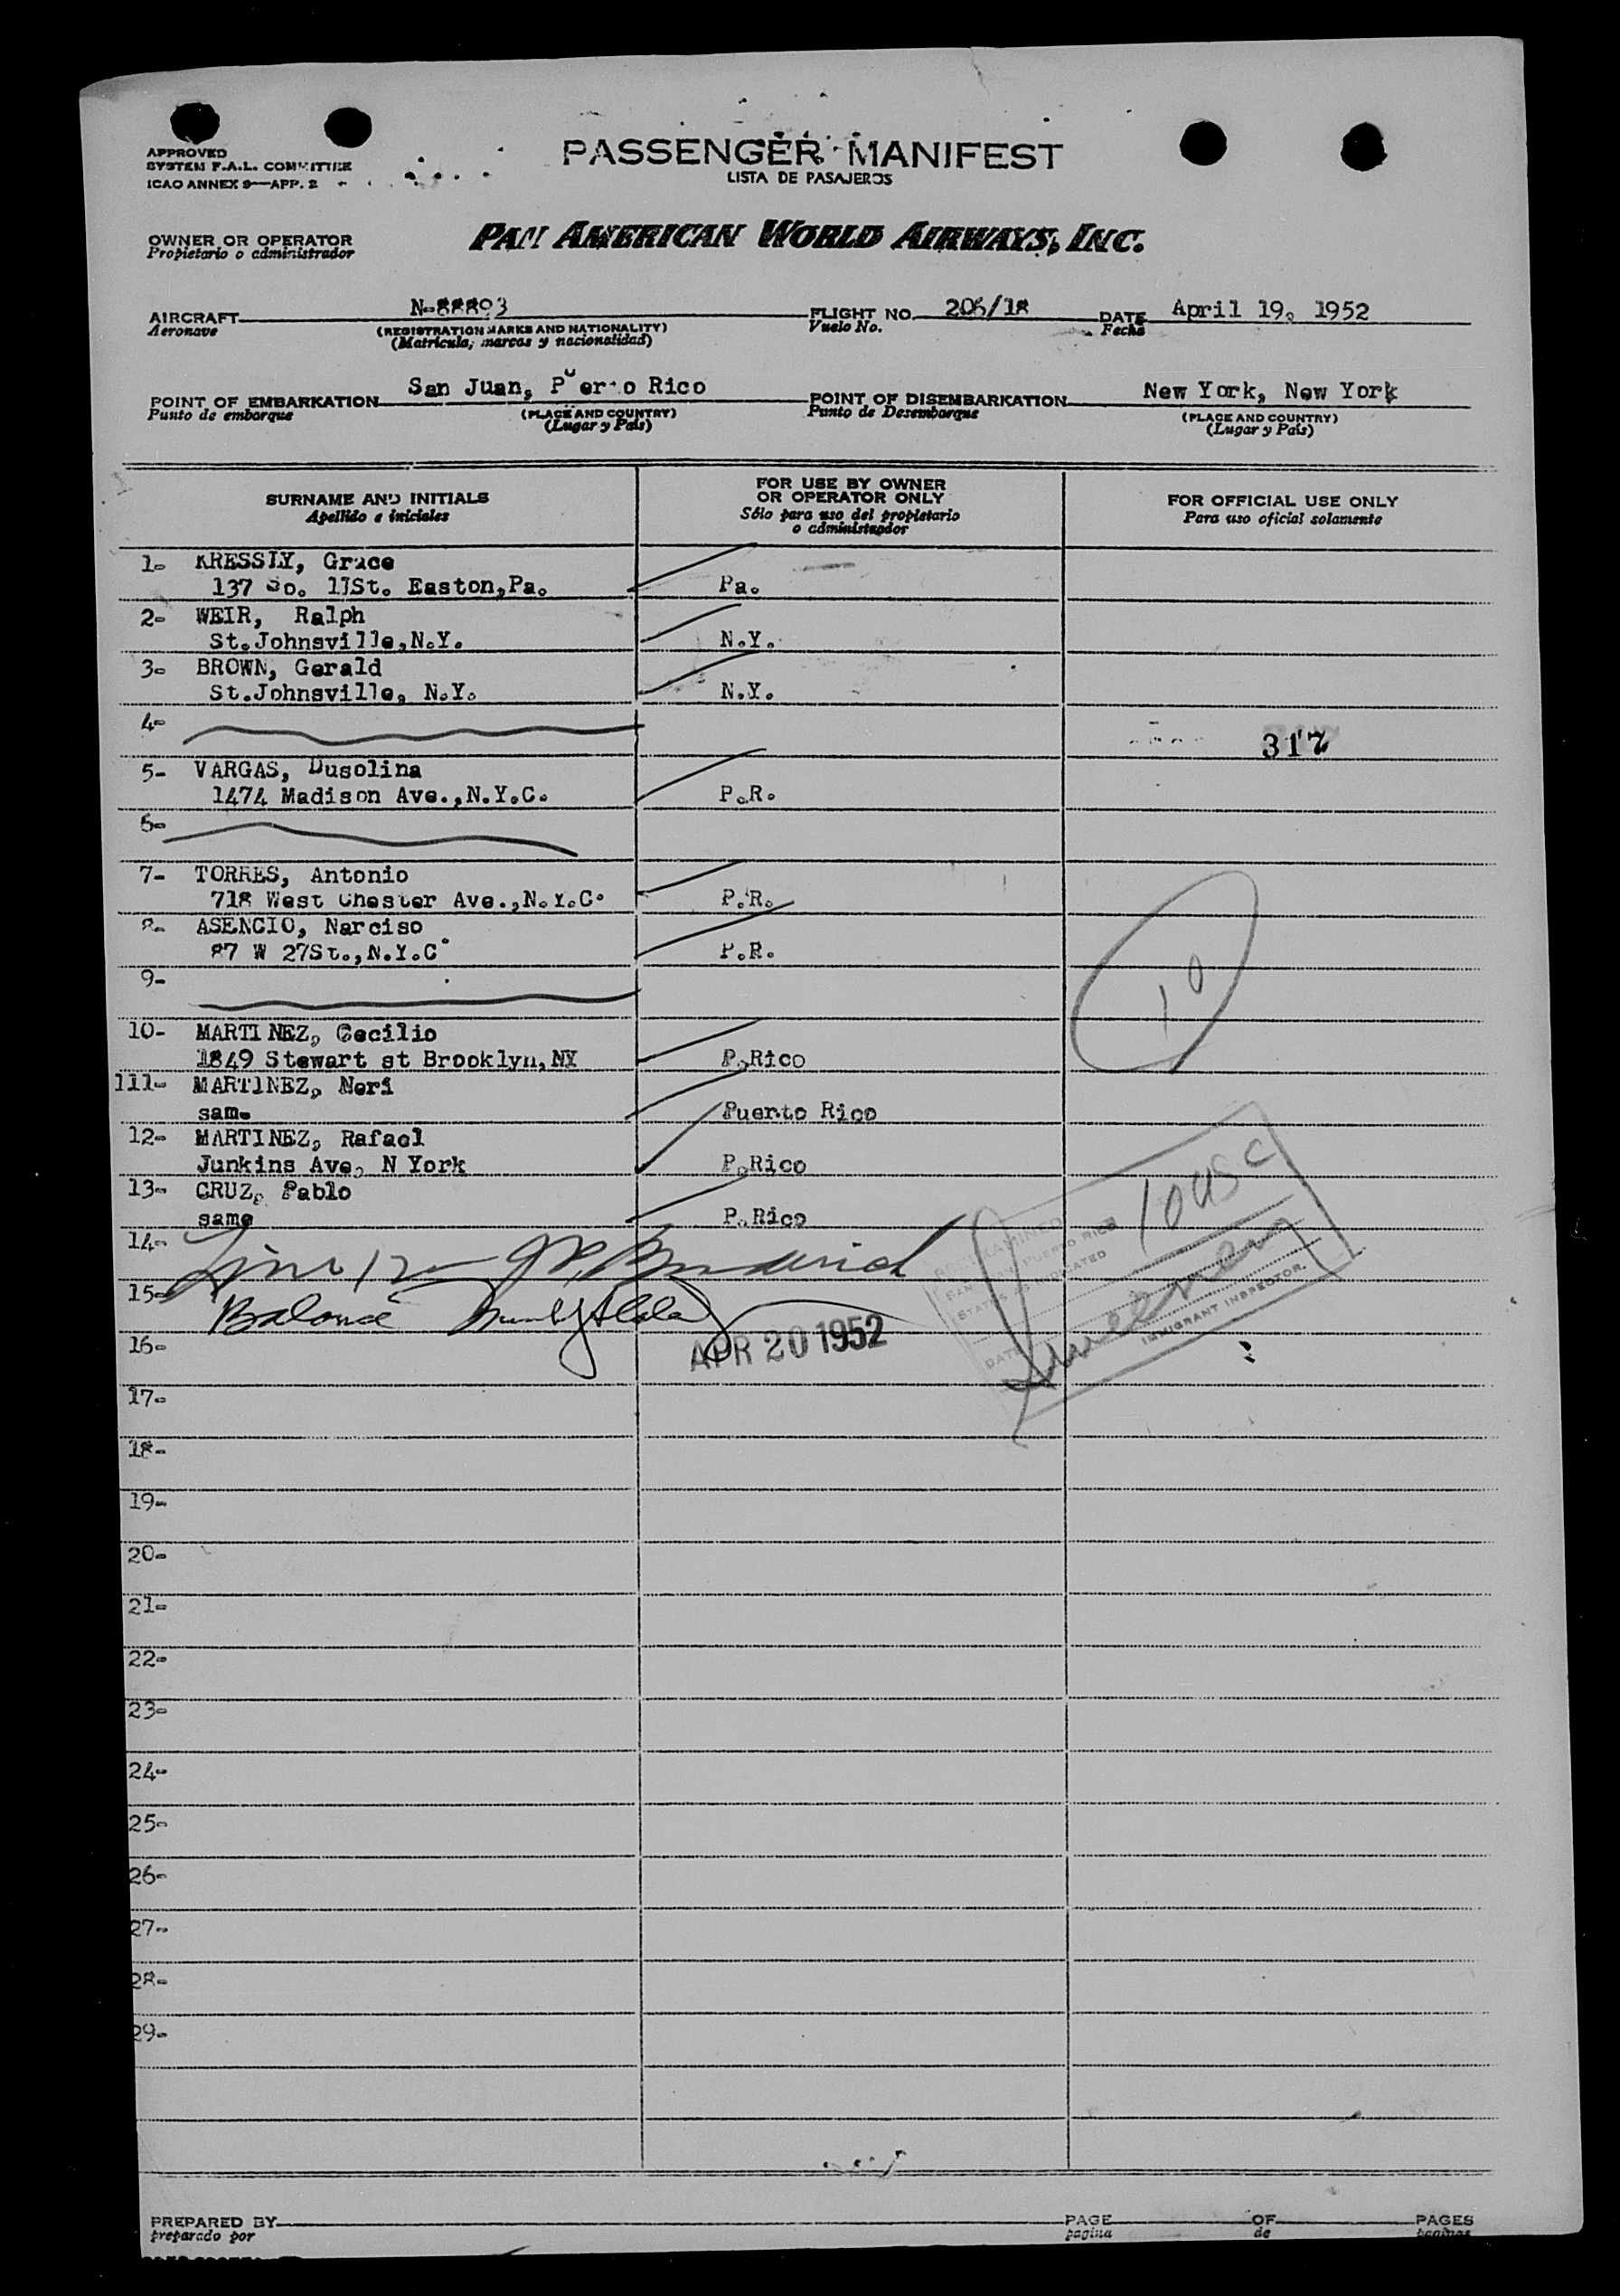 APPROVED
SYSTEM F.A.L. COMMITTEE
ICAO ANNEX 9—APP. 2
PASSENGER MANIFEST
LISTA DE PASAJEROS
OWNER OR OPERATOR
Propietario o administrador
PAN AMERICAN WORLD AIRWAYS, INC.
AIRCRAFT N-88893 FLIGHT NO. 206/18 DATE April 19, 1952
Aeronave (REGISTRATION MARKS AND NATIONALITY) Vuelo No. Fecha
(Matrícula, marcas y nacionalidad)
POINT OF EMBARKATION San Juan, Puerto Rico POINT OF DISEMBARKATION New York, New York
Punto de embarque (PLACE AND COUNTRY) Punto de Desembarque (PLACE AND COUNTRY)
(Lugar y País) (Lugar y País)
SURNAME AND INITIALS FOR USE BY OWNER OR OPERATOR ONLY FOR OFFICIAL USE ONLY
Apellido e iniciales Sólo para uso del propietario o administrador Para uso oficial solamente
1- KRESSLY, Grace
137 So. 11St. Easton,Pa. Pa.
2- WEIR, Ralph
St.Johnsville,N.Y. N.Y.
3- BROWN, Gerald
St.Johnsville, N.Y. N.Y.
4-
317
5- VARGAS, Dusolina
1474 Madison Ave.,N.Y.C. P.R.
6-
7- TORRES, Antonio
718 West Chester Ave.,N.Y.C. P.R.
8- ASENCIO, Narciso
87 W 27St.,N.Y.C. P.R.
9-
10
10- MARTINEZ, Cecilio
1849 Stewart st Brooklyn,NY P.Rico
111- MARTINEZ, Neri
same Puerto Rico
12- MARTINEZ, Rafael
Junkins Ave, N York P.Rico
13- CRUZ, Pablo
same P.Rico
10 USC
14- Line 12
15- Balance
APR 20 1952
PUERTO RICO
DATE
IMMIGRANT INSPECTOR.
16-
17-
18-
19-
20-
21-
22-
23-
24-
25-
26-
27-
28-
29-
PREPARED BY PAGE OF PAGES
preparado por pagina de paginas